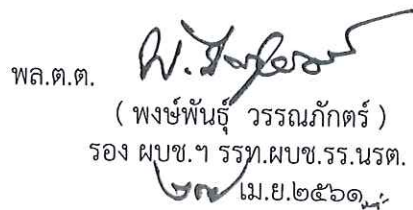 พล.ต.ต.
( พงษ์พันธุ์ วรรณภักตร์ )
รอง ผบช.ฯ รรท.ผบช.รร.นรต.
๒๗ เม.ย.๒๕๖๑